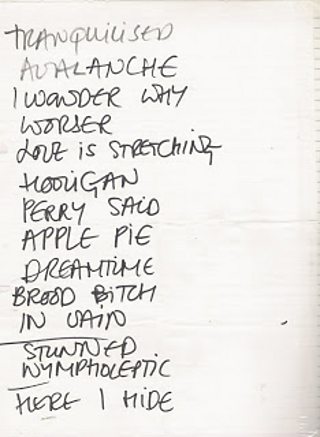 TRANQUILISED
AVALANCHE
I WONDER WHY
WORSER
LOVE is STRETCHING
HOOLIGAN
PERRY SAID
APPLE PIE
DREAMTIME
BROOD BITCH
IN VAIN
STUNNED
NYMPHOLEPTIC
HERE I HIDE